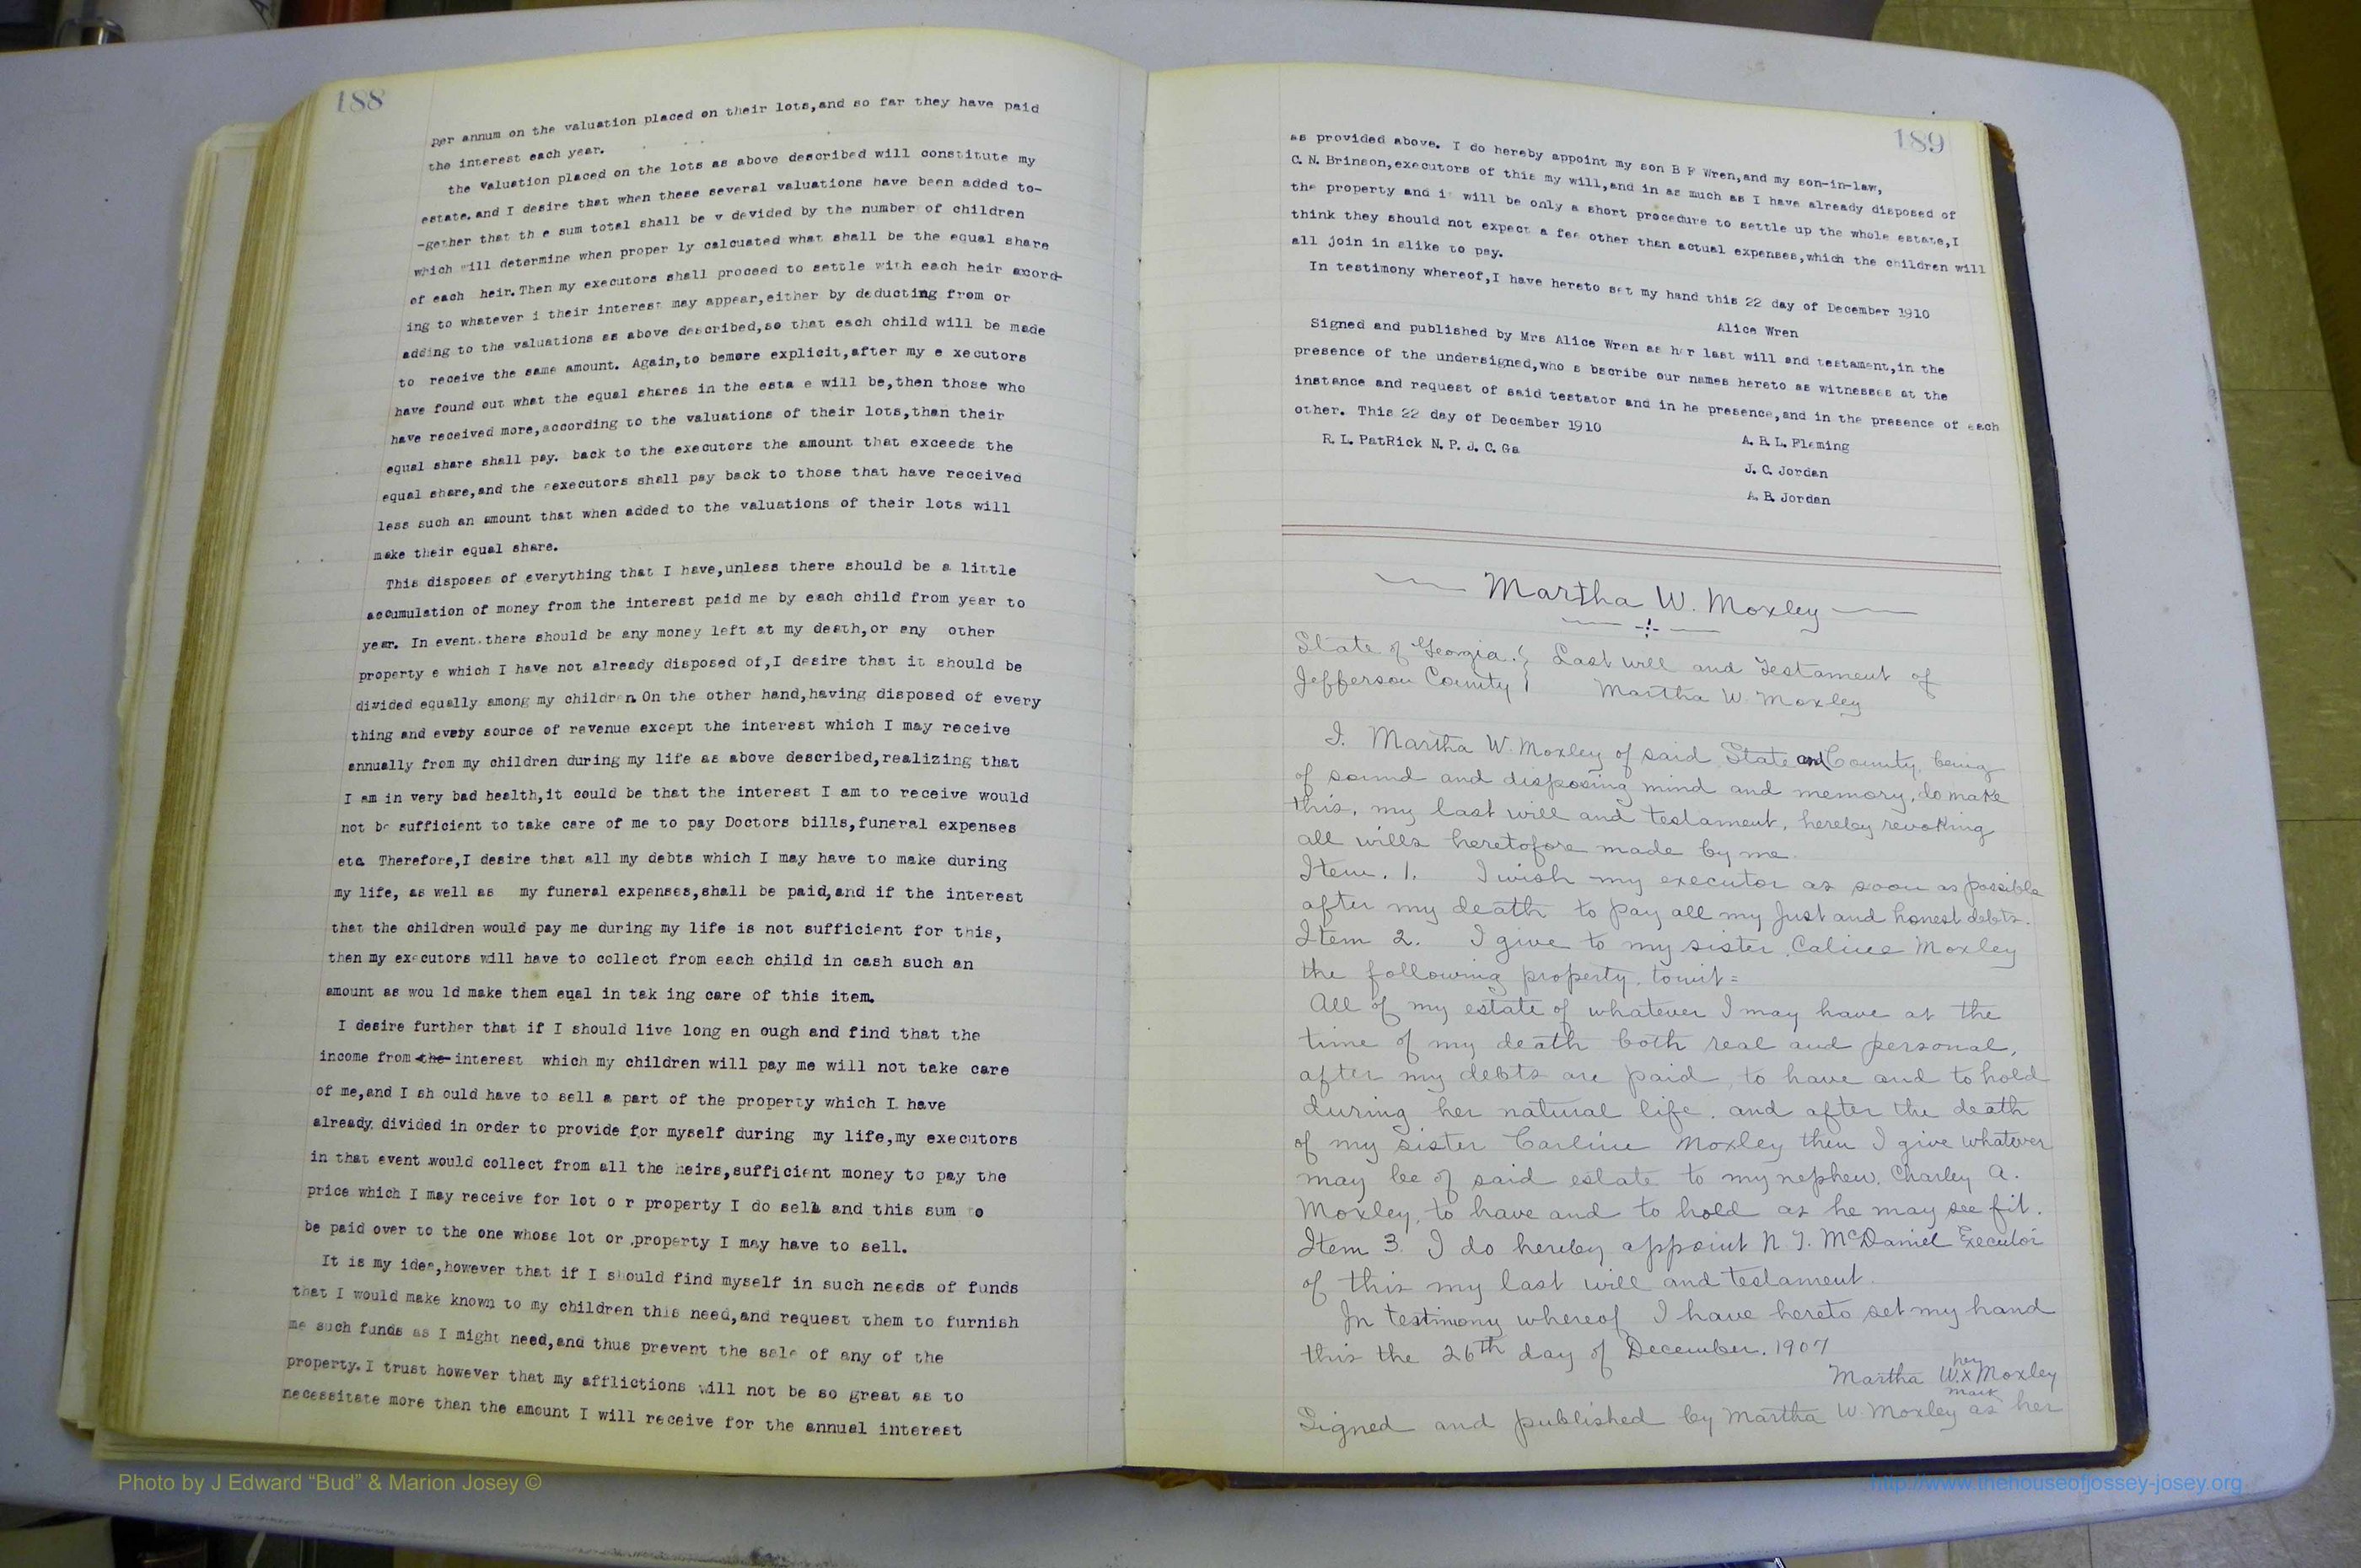 188
per annum on the valuation placed on their lots,and so far they have paid
the interest each year.
the valuation placed on the lots as above described will constitute my
estate.and I desire that when these several valuations have been added to-
-gether that th e sum total shall be v devided by the number of children
which will determine when proper ly calcuated what shall be the equal share
of each heir.Then my executors shall proceed to settle with each heir accord-
ing to whatever i their interest may appear,either by deducting from or
adding to the valuations as above described,so that each child will be made
to receive the same amount. Again,to bemore explicit,after my e xecutors
have found out what the equal shares in the esta e will be,then those who
have received more,according to the valuations of their lots,than their
equal share shall pay. back to the executors the amount that exceeds the
equal share,and the eexecutors shall pay back to those that have received
less such an amount that when added to the valuations of their lots will
make their equal share.
This disposes of everything that I have,unless there should be a little
accumulation of money from the interest paid me by each child from year to
year. In event.there should be any money left at my death,or any other
property e which I have not already disposed of,I desire that it should be
divided equally among my children.On the other hand,having disposed of every
thing and every source of revenue except the interest which I may receive
annually from my children during my life as above described,realizing that
I am in very bad health,it could be that the interest I am to receive would
not be sufficient to take care of me to pay Doctors bills,funeral expenses
etc. Therefore,I desire that all my debts which I may have to make during
my life, as well as my funeral expenses,shall be paid,and if the interest
that the children would pay me during my life is not sufficient for this,
then my executors will have to collect from each child in cash such an
amount as wou ld make them eual in tak ing care of this item.
I desire further that if I should live long en ough and find that the
income from the interest which my children will pay me will not take care
of me,and I sh ould have to sell a part of the property which I have
already divided in order to provide for myself during my life,my executors
in that event would collect from all the heirs,sufficient money to pay the
price which I may receive for lot o r property I do sell and this sum to
be paid over to the one whose lot or property I may have to sell.
It is my idea,however that if I should find myself in such needs of funds
that I would make known to my children this need,and request them to furnish
me such funds as I might need,and thus prevent the sale of any of the
property.I trust however that my afflictions will not be so great as to
necessitate more than the amount I will receive for the annual interest
189
as provided above. I do hereby appoint my son B F Wren,and my son-in-law,
C. N. Brinson,executors of this my will,and in as much as I have already disposed of
the property and i will be only a short procedure to settle up the whole estate,I
think they should not expect a fee other than actual expenses,which the children will
all join in alike to pay.
In testimony whereof,I have hereto set my hand this 22 day of December 1910
Alice Wren
Signed and published by Mrs Alice Wren as her last will and testament,in the
presence of the undersigned,who s bscribe our names hereto as witnesses at the
instance and request of said testator and in he presence,and in the presence of each
other. This 22 day of December 1910
R. L. PatRick N. P. J. C. Ga
A. B. L. Fleming
J. C. Jordan
A. B. Jordan
Martha W. Moxley
State of Georgia. Last will and Testament of
Jefferson County Martha W. Moxley
I. Martha W. Moxley of said State and County, being
of sound and disposing mind and memory, do make
this, my last will and testament, hereby revoking
all wills heretofore made by me.
Item. 1. I wish my executor as soon as possible
after my death to pay all my just and honest debts.
Item 2. I give to my sister Caliree Moxley
the following property, towit=
All of my estate of whatever I may have at the
time of my death both real and personal,
after my debts are paid, to have and to hold
during her natural life. and after the death
of my sister Carline Moxley then I give whatever
may be of said estate to my nephew, Charley A.
Moxley, to have and to hold as he may see fit.
Item 3. I do hereby appoint N. J. McDaniel Executor
of this my last will and testament.
In testimony whereof I have hereto set my hand
this the 26th day of December. 1907
her
Martha W. x Moxley
mark
Signed and published by Martha W. Moxley as her
Photo by J Edward “Bud” & Marion Josey ©
http://www.thehouseofjossey-josey.org